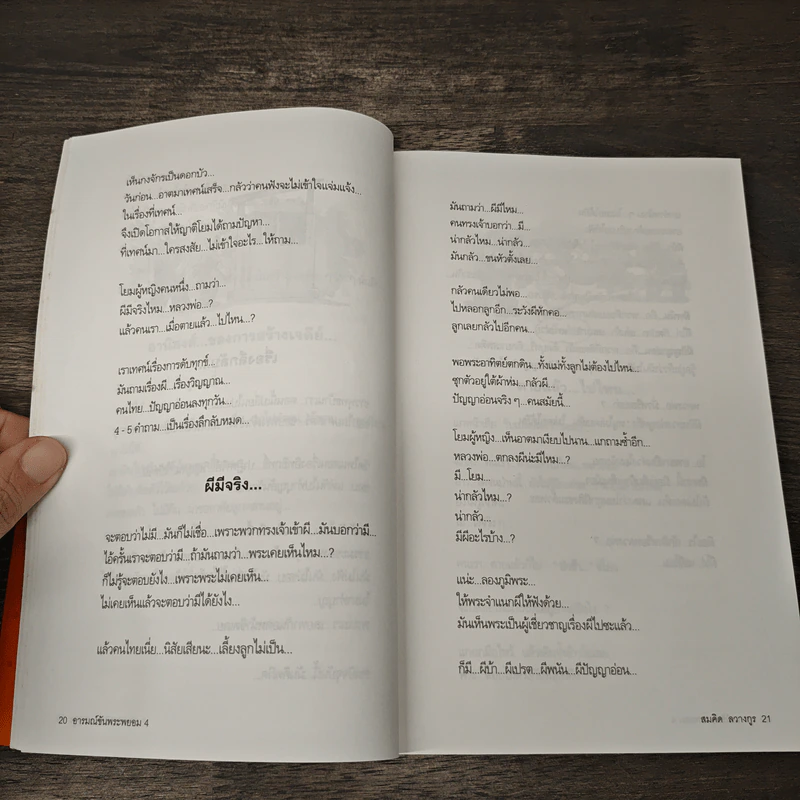 เห็นกงจักรเป็นดอกบัว...
วันก่อน...อาตมาเทศน์เสร็จ...กลัวว่าคนฟังจะไม่เข้าใจแจ่มแจ้ง...
ในเรื่องที่เทศน์...
จึงเปิดโอกาสให้ญาติโยมได้ถามปัญหา...
ที่เทศน์มา...ใครสงสัย...ไม่เข้าใจอะไร...ให้ถาม...
โยมผู้หญิงคนหนึ่ง...ถามว่า...
ผีมีจริงไหม...หลวงพ่อ...?
แล้วคนเรา...เมื่อตายแล้ว...ไปไหน...?
เราเทศน์เรื่องการดับทุกข์...
มันถามเรื่องผี...เรื่องวิญญาณ...
คนไทย...ปัญญาอ่อนลงทุกวัน...
4 - 5 คำถาม...เป็นเรื่องลึกลับหมด...
ผีมีจริง...
จะตอบว่าไม่มี...มันก็ไม่เชื่อ...เพราะพวกทรงเจ้าเข้าผี...มันบอกว่ามี...
ไอ้ครั้นเราจะตอบว่ามี...ถ้ามันถามว่า...พระเคยเห็นไหม...?
ก็ไม่รู้จะตอบยังไง...เพราะพระไม่เคยเห็น...
ไม่เคยเห็นแล้วจะตอบว่ามีได้ยังไง...
แล้วคนไทยเนี่ย...นิสัยเสียนะ...เลี้ยงลูกไม่เป็น...
20 อารมณ์ขันพระพยอม 4
มันถามว่า...ผีมีไหม...
คนทรงเจ้าบอกว่า...มี...
น่ากลัวไหม...น่ากลัว...
มันกลัว...ขนหัวตั้งเลย...
กลัวคนเดียวไม่พอ...
ไปหลอกลูกอีก...ระวังผีหักคอ...
ลูกเลยกลัวไปอีกคน...
พอพระอาทิตย์ตกดิน...ทั้งแม่ทั้งลูกไม่ต้องไปไหน...
ซุกตัวอยู่ใต้ผ้าห่ม...กลัวผี...
ปัญญาอ่อนจริง ๆ...คนสมัยนี้...
โยมผู้หญิง...เห็นอาตมาเงียบไปนาน...แกถามซ้ำอีก...
หลวงพ่อ...ตกลงผีน่ะมีไหม...?
มี...โยม...
น่ากลัวไหม...?
น่ากลัว...
มีผีอะไรบ้าง...?
แน่ะ...ลองภูมิพระ...
ให้พระจำแนกผีให้ฟังด้วย...
มันเห็นพระเป็นผู้เชี่ยวชาญเรื่องผีไปซะแล้ว...
ก็มี...ผีบ้า...ผีเปรต...ผีพนัน...ผีปัญญาอ่อน...
สมคิด ลวางกูร 21